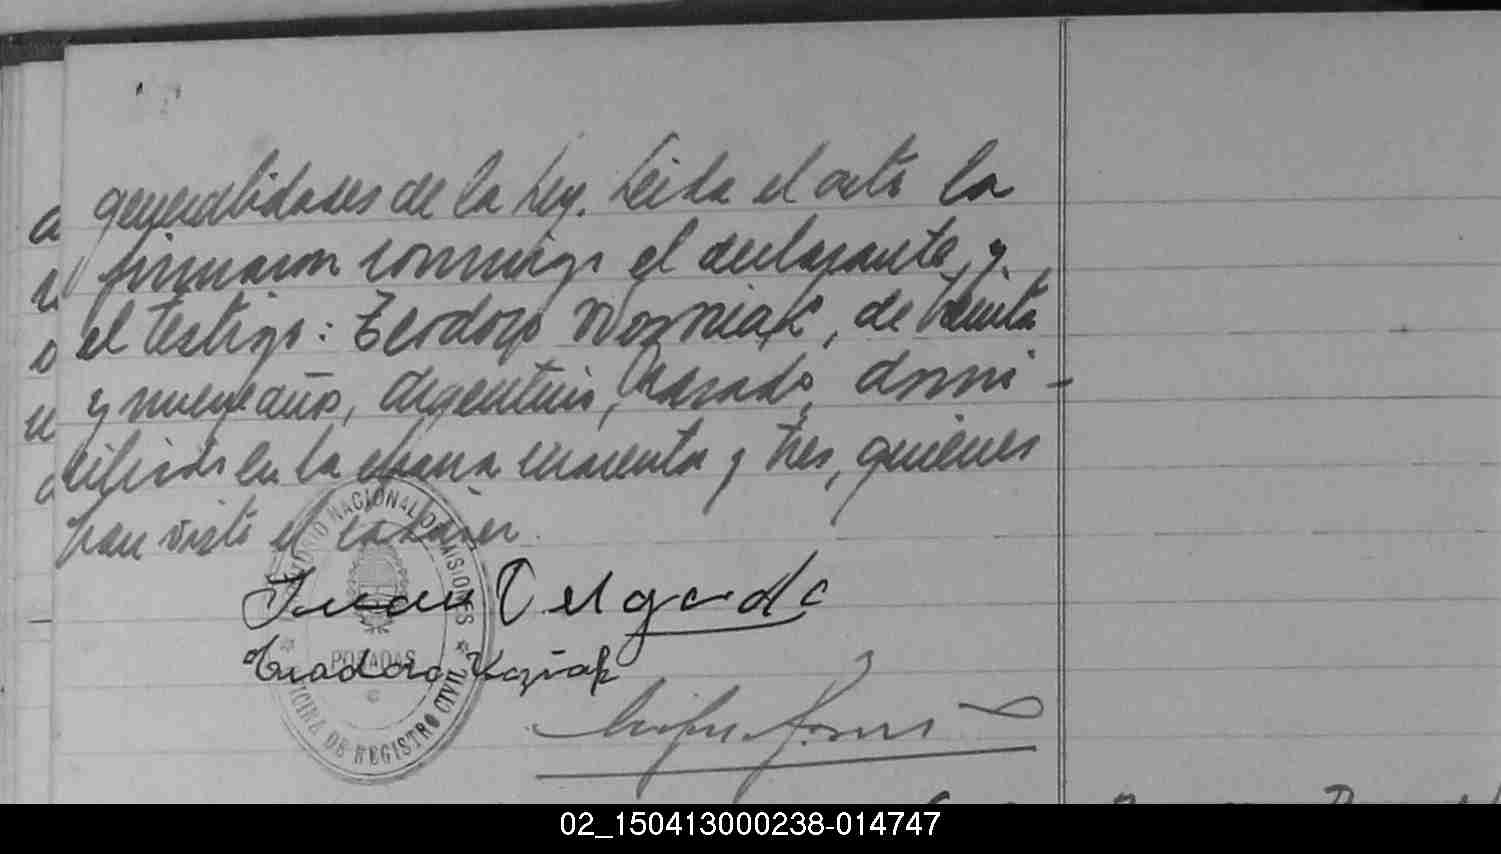 generalidades de la Ley. Leida el acta la
firmaron conmigo el declarante, y
el testigo: Teodoro Wozniak, de treinta
y nueve años, Argentino, Casado, domi-
ciliado en la chacra cincuenta y tres, quienes
han visto el cadaver.
REGISTRO NACIONAL DE MISIONES
Juan Delgado
POSADAS
Teodoro
OFICINA DE REGISTRO CIVIL
02_150413000238-014747